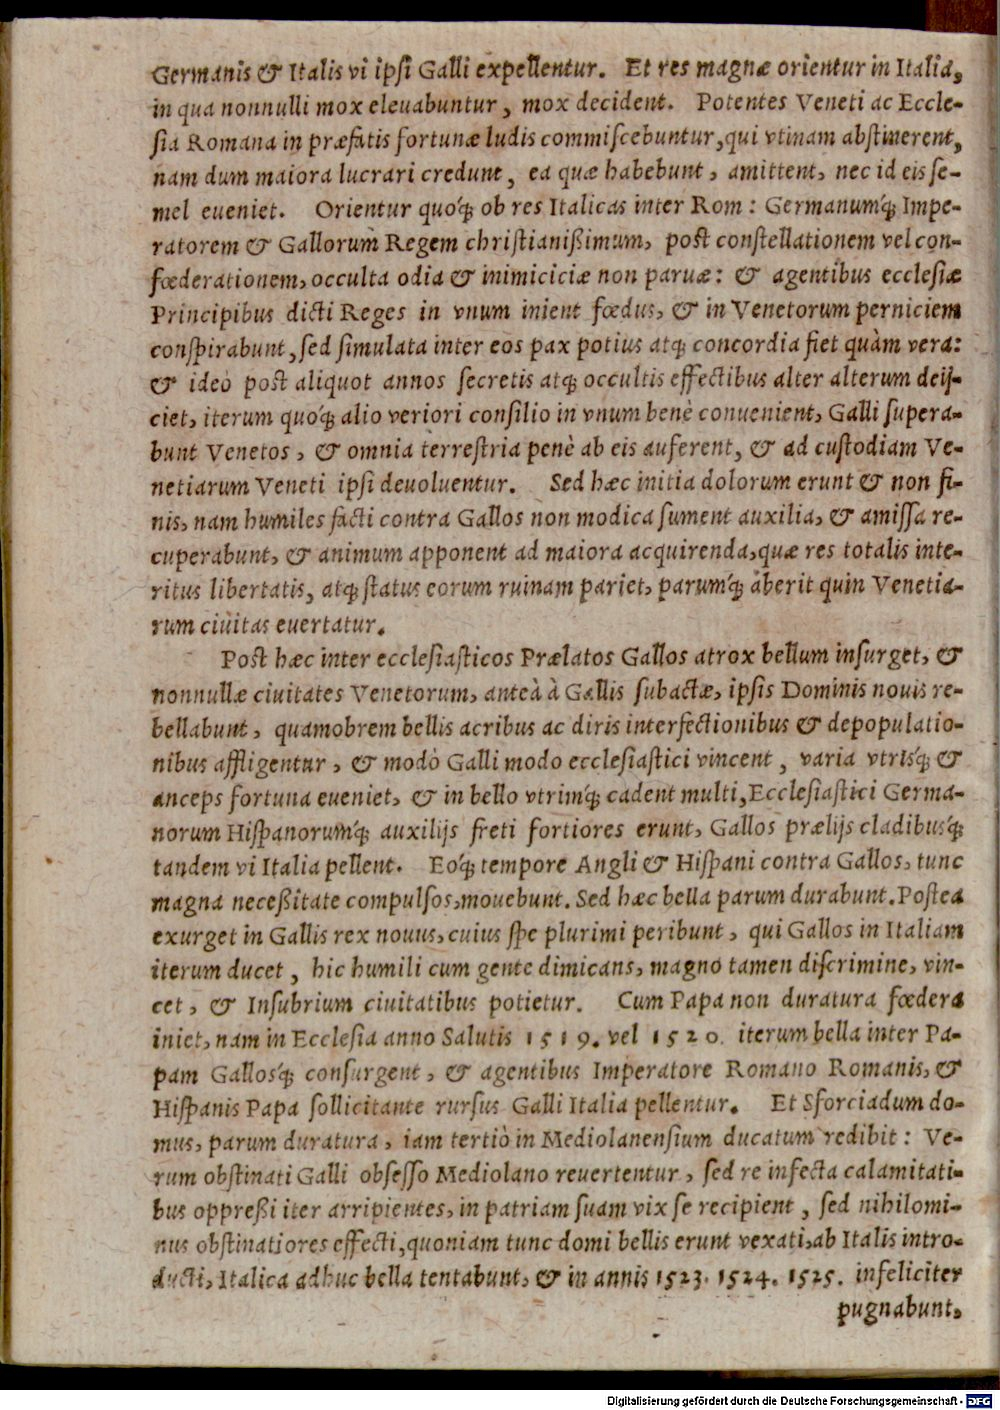 Germanis & Italis vi ipſi Galli expellentur. Et res magnæ orientur in Italia,
in qua nonnulli mox eleuabuntur, mox decident. Potentes Veneti ac Eccle-
ſia Romana in præfatis fortunæ ludis commiſcebuntur, qui vtinam abſtinerent,
nam dum maiora lucrari credunt, ea quæ habebunt, amittent, nec id eis ſe-
mel eueniet. Orientur quoq́; ob res Italicas inter Rom: Germanumq́; Impe-
ratorem & Gallorum Regem chriſtianißimum, poſt conſtellationem vel con-
fœderationem, occulta odia & inimiciciæ non paruæ: & agentibus eccleſiæ
Principibus dicti Reges in vnum inient fœdus, & in Venetorum perniciem
conſpirabunt, ſed ſimulata inter eos pax potius atq; concordia fiet quàm vera:
& ideò poſt aliquot annos ſecretis atq; occultis effectibus alter alterum deij-
ciet, iterum quoq́; alio veriori conſilio in vnum benè conuenient, Galli ſupera-
bunt Venetos, & omnia terreſtria penè ab eis auferent, & ad cuſtodiam Ve-
netiarum Veneti ipſi deuoluentur. Sed hæc initia dolorum erunt & non fi-
nis, nam humiles facti contra Gallos non modica ſument auxilia, & amiſſa re-
cuperabunt, & animum apponent ad maiora acquirenda, quæ res totalis inte-
ritus libertatis, atq; ſtatus eorum ruinam pariet, parumq́; aberit quin Venetia-
rum ciuitas euertatur.
Poſt hæc inter eccleſiaſticos Prælatos Gallos atrox bellum inſurget, &
nonnullæ ciuitates Venetorum, anteà à Gallis ſubactæ, ipſis Dominis nouis re-
bellabunt, quamobrem bellis acribus ac diris interfectionibus & depopulatio-
nibus affligentur, & modò Galli modo eccleſiaſtici vincent, varia vtriſq́; &
anceps fortuna eueniet, & in bello vtrimq́; cadent multi, Eccleſiaſtici Germa-
norum Hiſpanorumq́; auxilijs freti fortiores erunt, Gallos prælijs cladibusq́;
tandem vi Italia pellent. Eoq́; tempore Angli & Hiſpani contra Gallos, tunc
magna neceßitate compulſos, mouebunt. Sed hæc bella parum durabunt. Poſtea
exurget in Gallis rex nouus, cuius ſpe plurimi peribunt, qui Gallos in Italiam
iterum ducet, hic humili cum gente dimicans, magno tamen diſcrimine, vin-
cet, & Inſubrium ciuitatibus potietur. Cum Papa non duratura fœdera
iniet, nam in Eccleſia anno Salutis 1519. vel 1520. iterum bella inter Pa-
pam Gallosq́; conſurgent, & agentibus Imperatore Romano Romanis, &
Hiſpanis Papa ſollicitante rurſus Galli Italia pellentur. Et Sforciadum do-
mus, parum duratura, iam tertiò in Mediolanenſium ducatum redibit: Ve-
rum obſtinati Galli obſeſſo Mediolano reuertentur, ſed re infecta calamitati-
bus oppreßi iter arripientes, in patriam ſuam vix ſe recipient, ſed nihilomi-
nus obſtinatiores effecti, quoniam tunc domi bellis erunt vexati, ab Italis intro-
ducti, Italica adhuc bella tentabunt, & in annis 1523. 1524. 1525. infeliciter
pugnabunt,
Digitalisierung gefördert durch die Deutsche Forschungsgemeinschaft - DFG